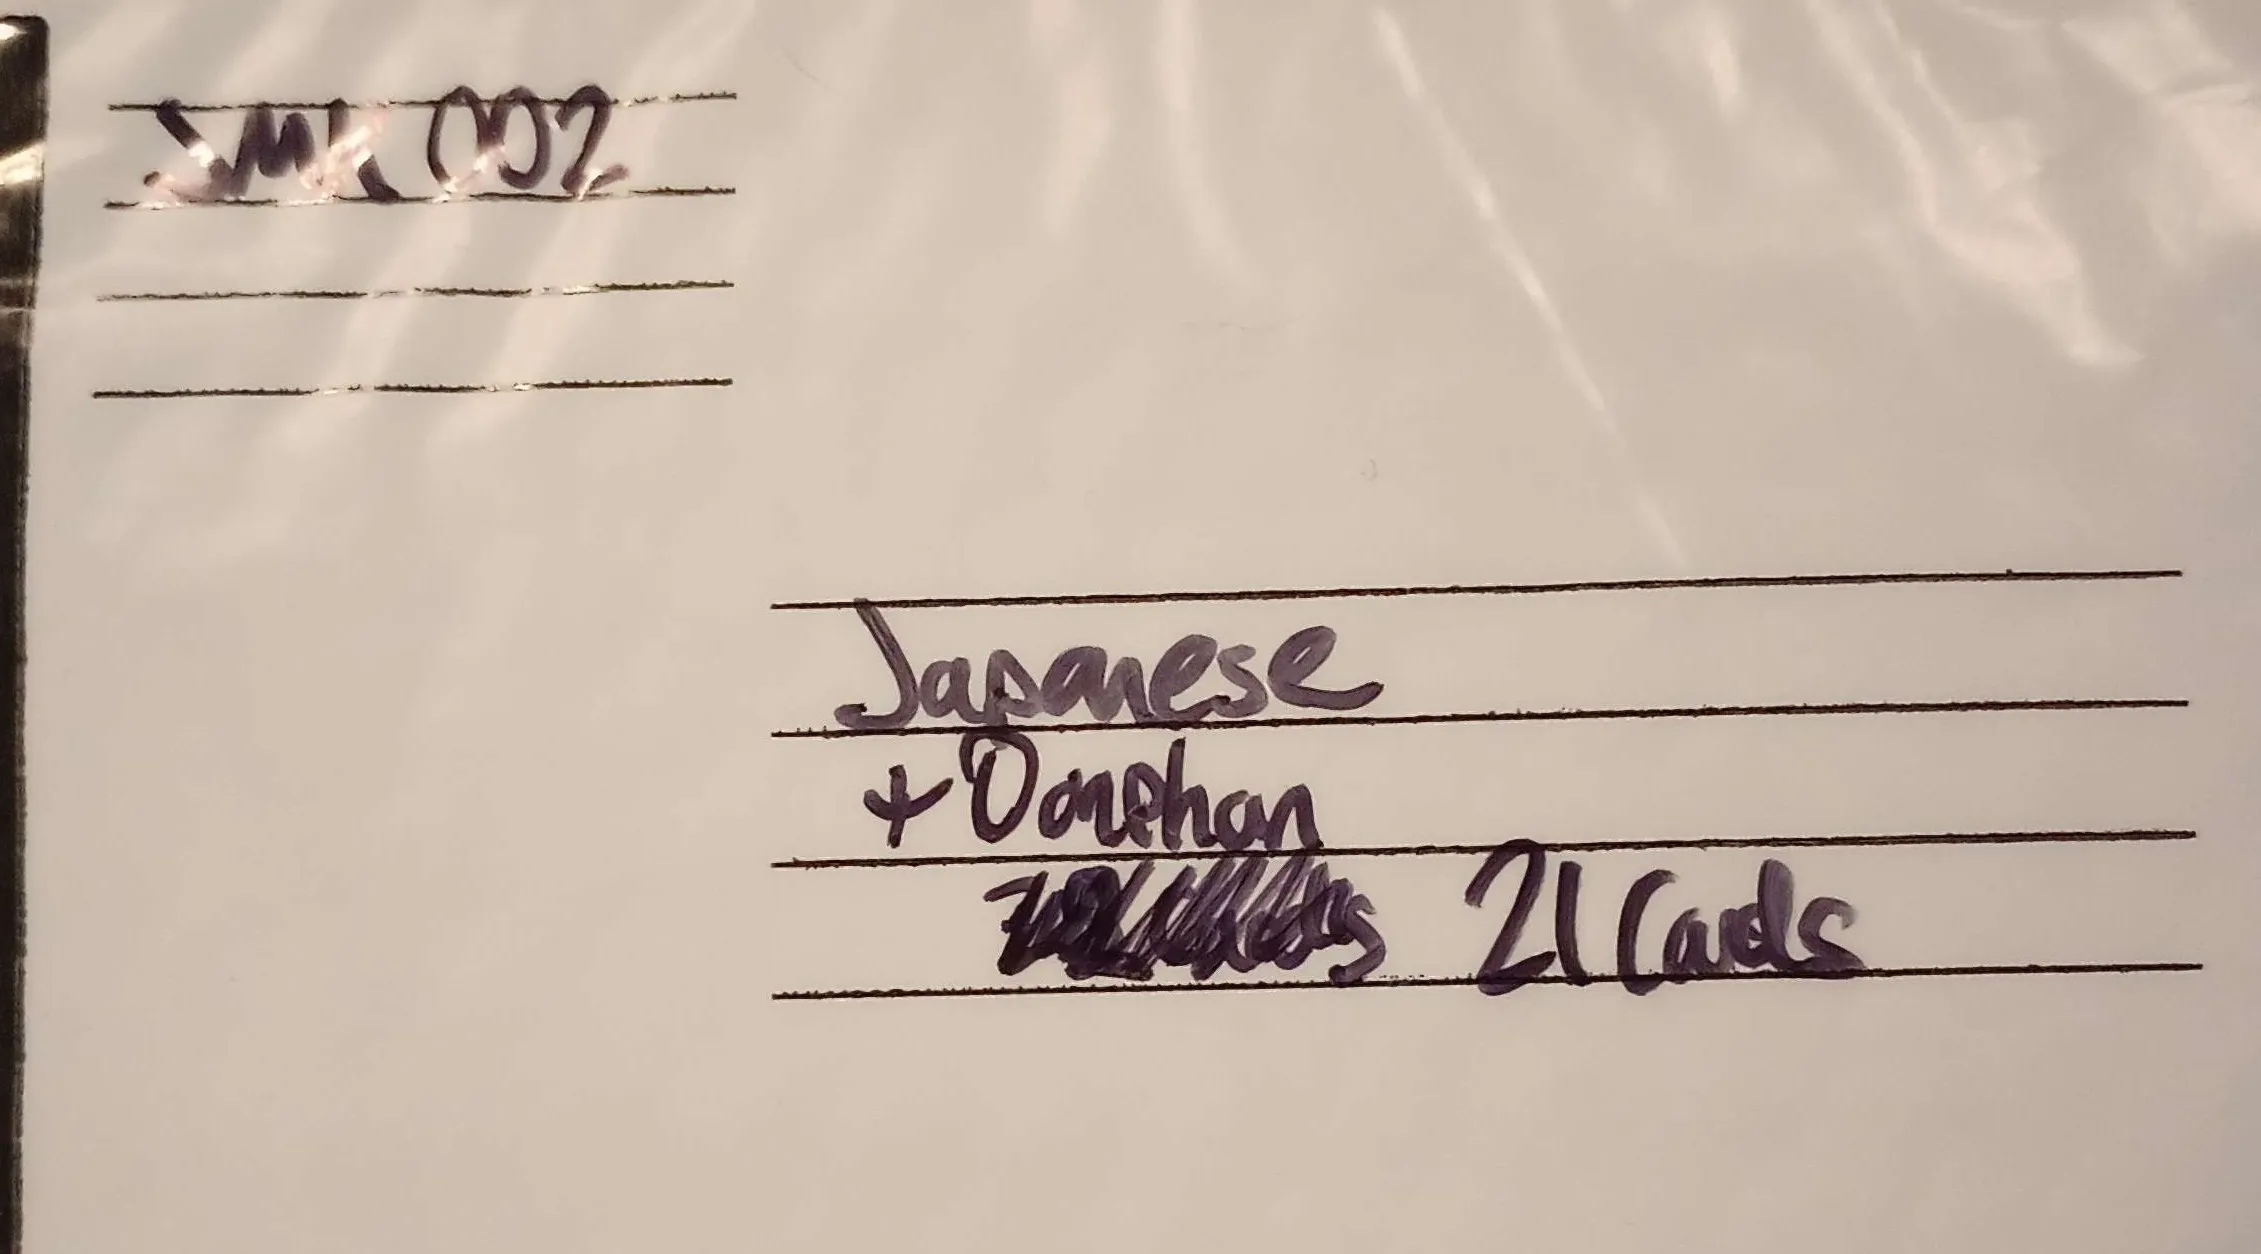 SMK 002
Japanese
+ Donphan
21 Cards